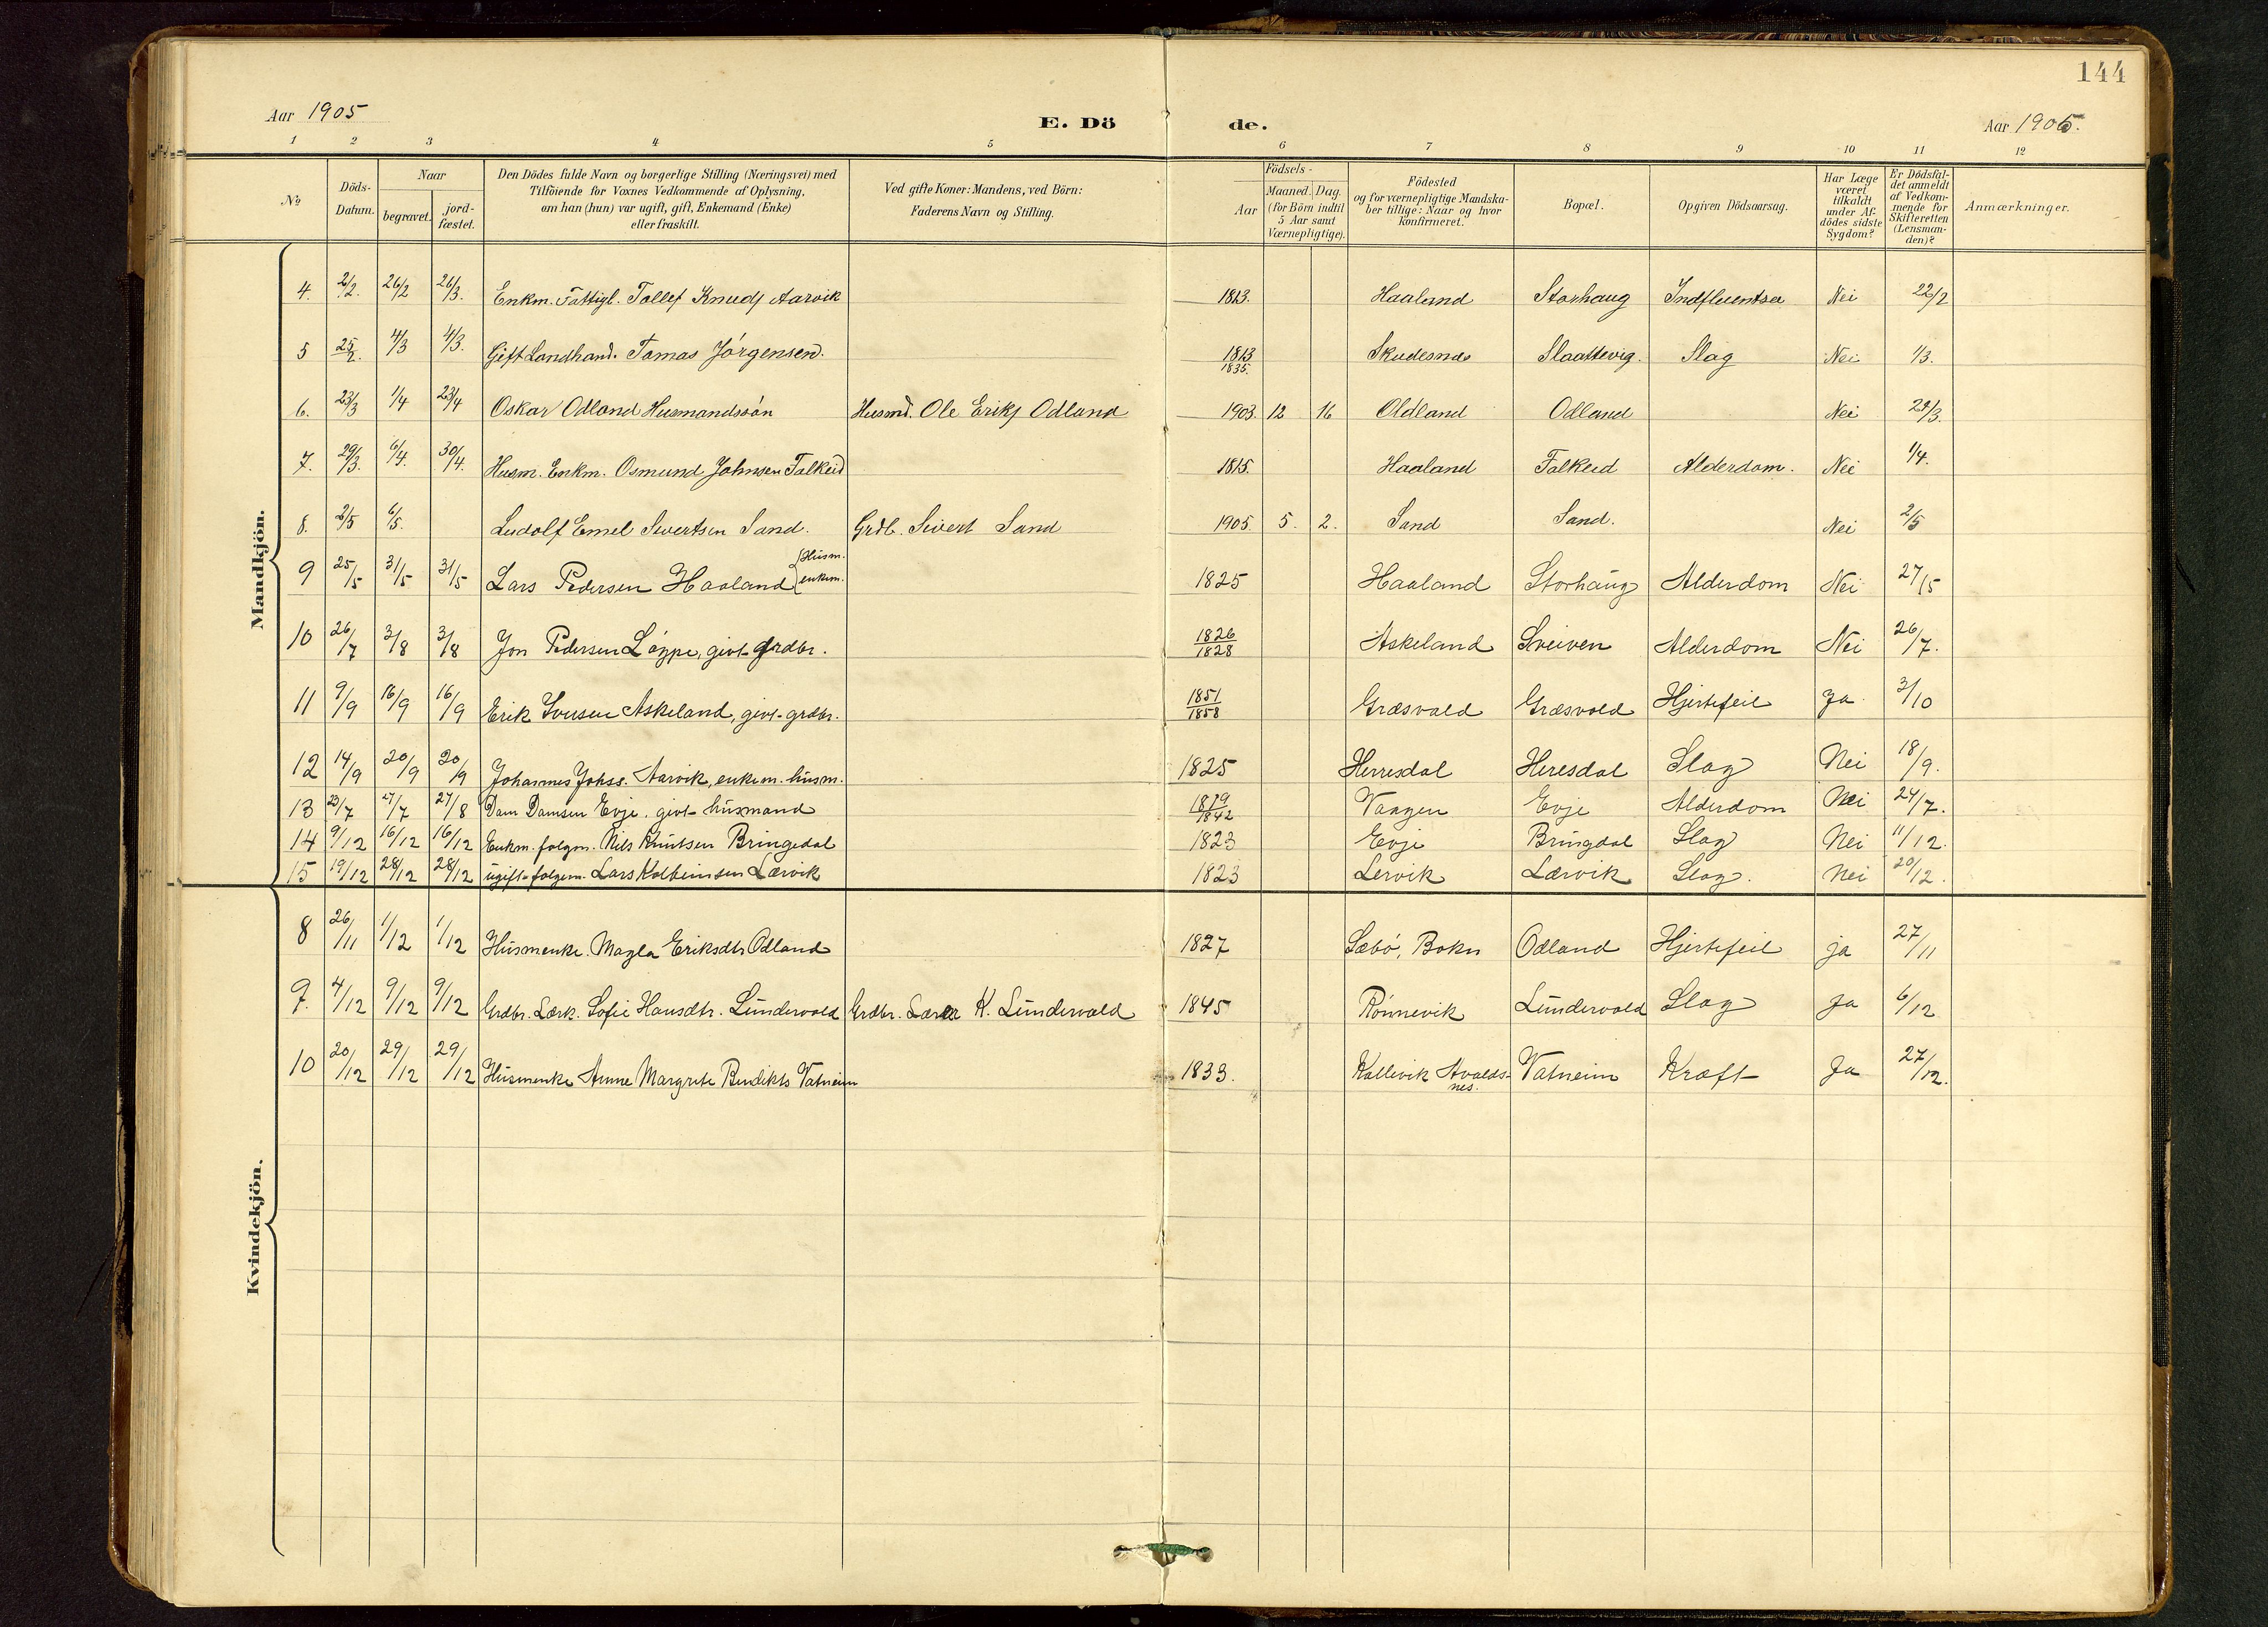 144
Aar 1905
E. Dö
de.
Aar 1905.
1 2 3 4 5 6 7 8 9 10 11 12
№
Döds-Datum.
Naar
begravet.
jord-fæstet.
Den Dödes fulde Navn og borgerlige Stilling (Næringsvei) med
Tilföiende for Voxnes Vedkommende af Oplysning,
om han (hun) var ugift, gift, Enkemand (Enke)
eller fraskilt.
Ved gifte Koner: Mandens, ved Börn:
Faderens Navn og Stilling.
Födsels-
Aar
Maaned. Dag.
(for Börn indtil
5 Aar samt
Værnepligtige).
Födested
og for værnepligtige Mandska-
ber tillige: Naar og hvor
konfirmeret.
Bopæl.
Opgiven Dödsaarsag.
Har Læge
været
tilkaldt
under Af-
dödes sidste
Sygdom?
Er Dödsfal-
det anmeldt
af Vedkom-
mende for
Skifteretten
(Lensman-
den)?
Anmærkninger.
Mandkjön.
4. 26/2 26/3. Enkm. Fattigl. Tollef Knuds Aarvik 1813. Haaland Storhaug Indfluentsa Nei 22/2
5 25/2. 4/3 4/3. Gift Landhand. Tomas Jörgensen. 1813 1835. Skudesnæs Slaattevig. Slag Nei 1/3.
6. 23/3 1/4 23/4 Oskar Odland Husmandssön Husmd. Ole Eriks Odland 1903. 12 16 Odland Odland Nei
7. 29/3. 6/4. 30/4. Husm. Enkm. Osmund Johnsen Falkeid 1815. Haaland Falkeid Alderdom. Nei 1/4.
8. 2/5 6/5. Ludolf Emel Sivertsen Sand. Grdb. Sivert Sand 1905. 5. 2. Sand Sand. Nei 2/5
9 25/5 31/5 31/5 Lars Pedersen Haaland {Husm. enkem. 1825 Haaland Storhaug Alderdom Nei 27/5
10 26/7 3/8 3/8 Jon Pedersen Löppe, givt-grdbr. 1826 1828 Askeland Sveiven Alderdom Nei 26/7.
11 9/9 16/9 16/9 Erik Iversen Askeland, givt-grdbr. 1851 1858 Græsvald Græsvold Hjertefeil Ja 3/10
12 14/9 20/9 20/9 Johannes Johss. Aarvik, enkem. husm. 1825 Herresdal Heresdal Slag Nei 18/9.
13 23/7 27/7 27/8 Dam Damsen Evje. givt-husmand 1819 1842 Vaagen Evje Alderdom Nei 24/7.
14 9/12 16/12 16/12 Enkm. folgm. Nils Knutsen Bringedal 1823 Evje Bringdal Slag Nei 11/12.
15 19/12 28/12 28/12 ugift-folgem. Lars Kolbeinsen Lærvik 1823 Lervik Lærvik Slag. Nei 20/12.
Kvindekjön.
8 26/11 1/12 1/12 Husmenke. Magla Eriksdtr Odland 1827 Sæbö, Bokn Odland Hjertefeil ja 27/11
9. 4/12 9/12 9/12 Grdbr. Lærk. Sofie Hansdtr. Lundervold Grdbr. Lærer K. Lundervold 1845 Rönnevik Lundervold Slag Ja 6/12
10 20/12 29/12 29/12 Husmenke Anne Margrete Bendikts Vatneim 1833. Kallevik Avalds-nes. Vatneim Kræft Ja 27/12.